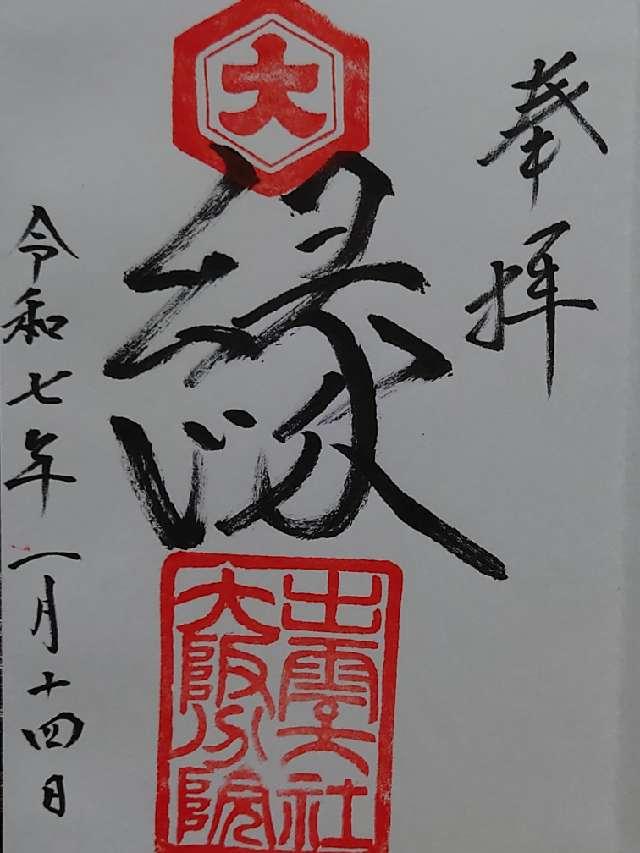 奉拝
大
縁
出雲大社
大阪分院
令和七年一月十四日